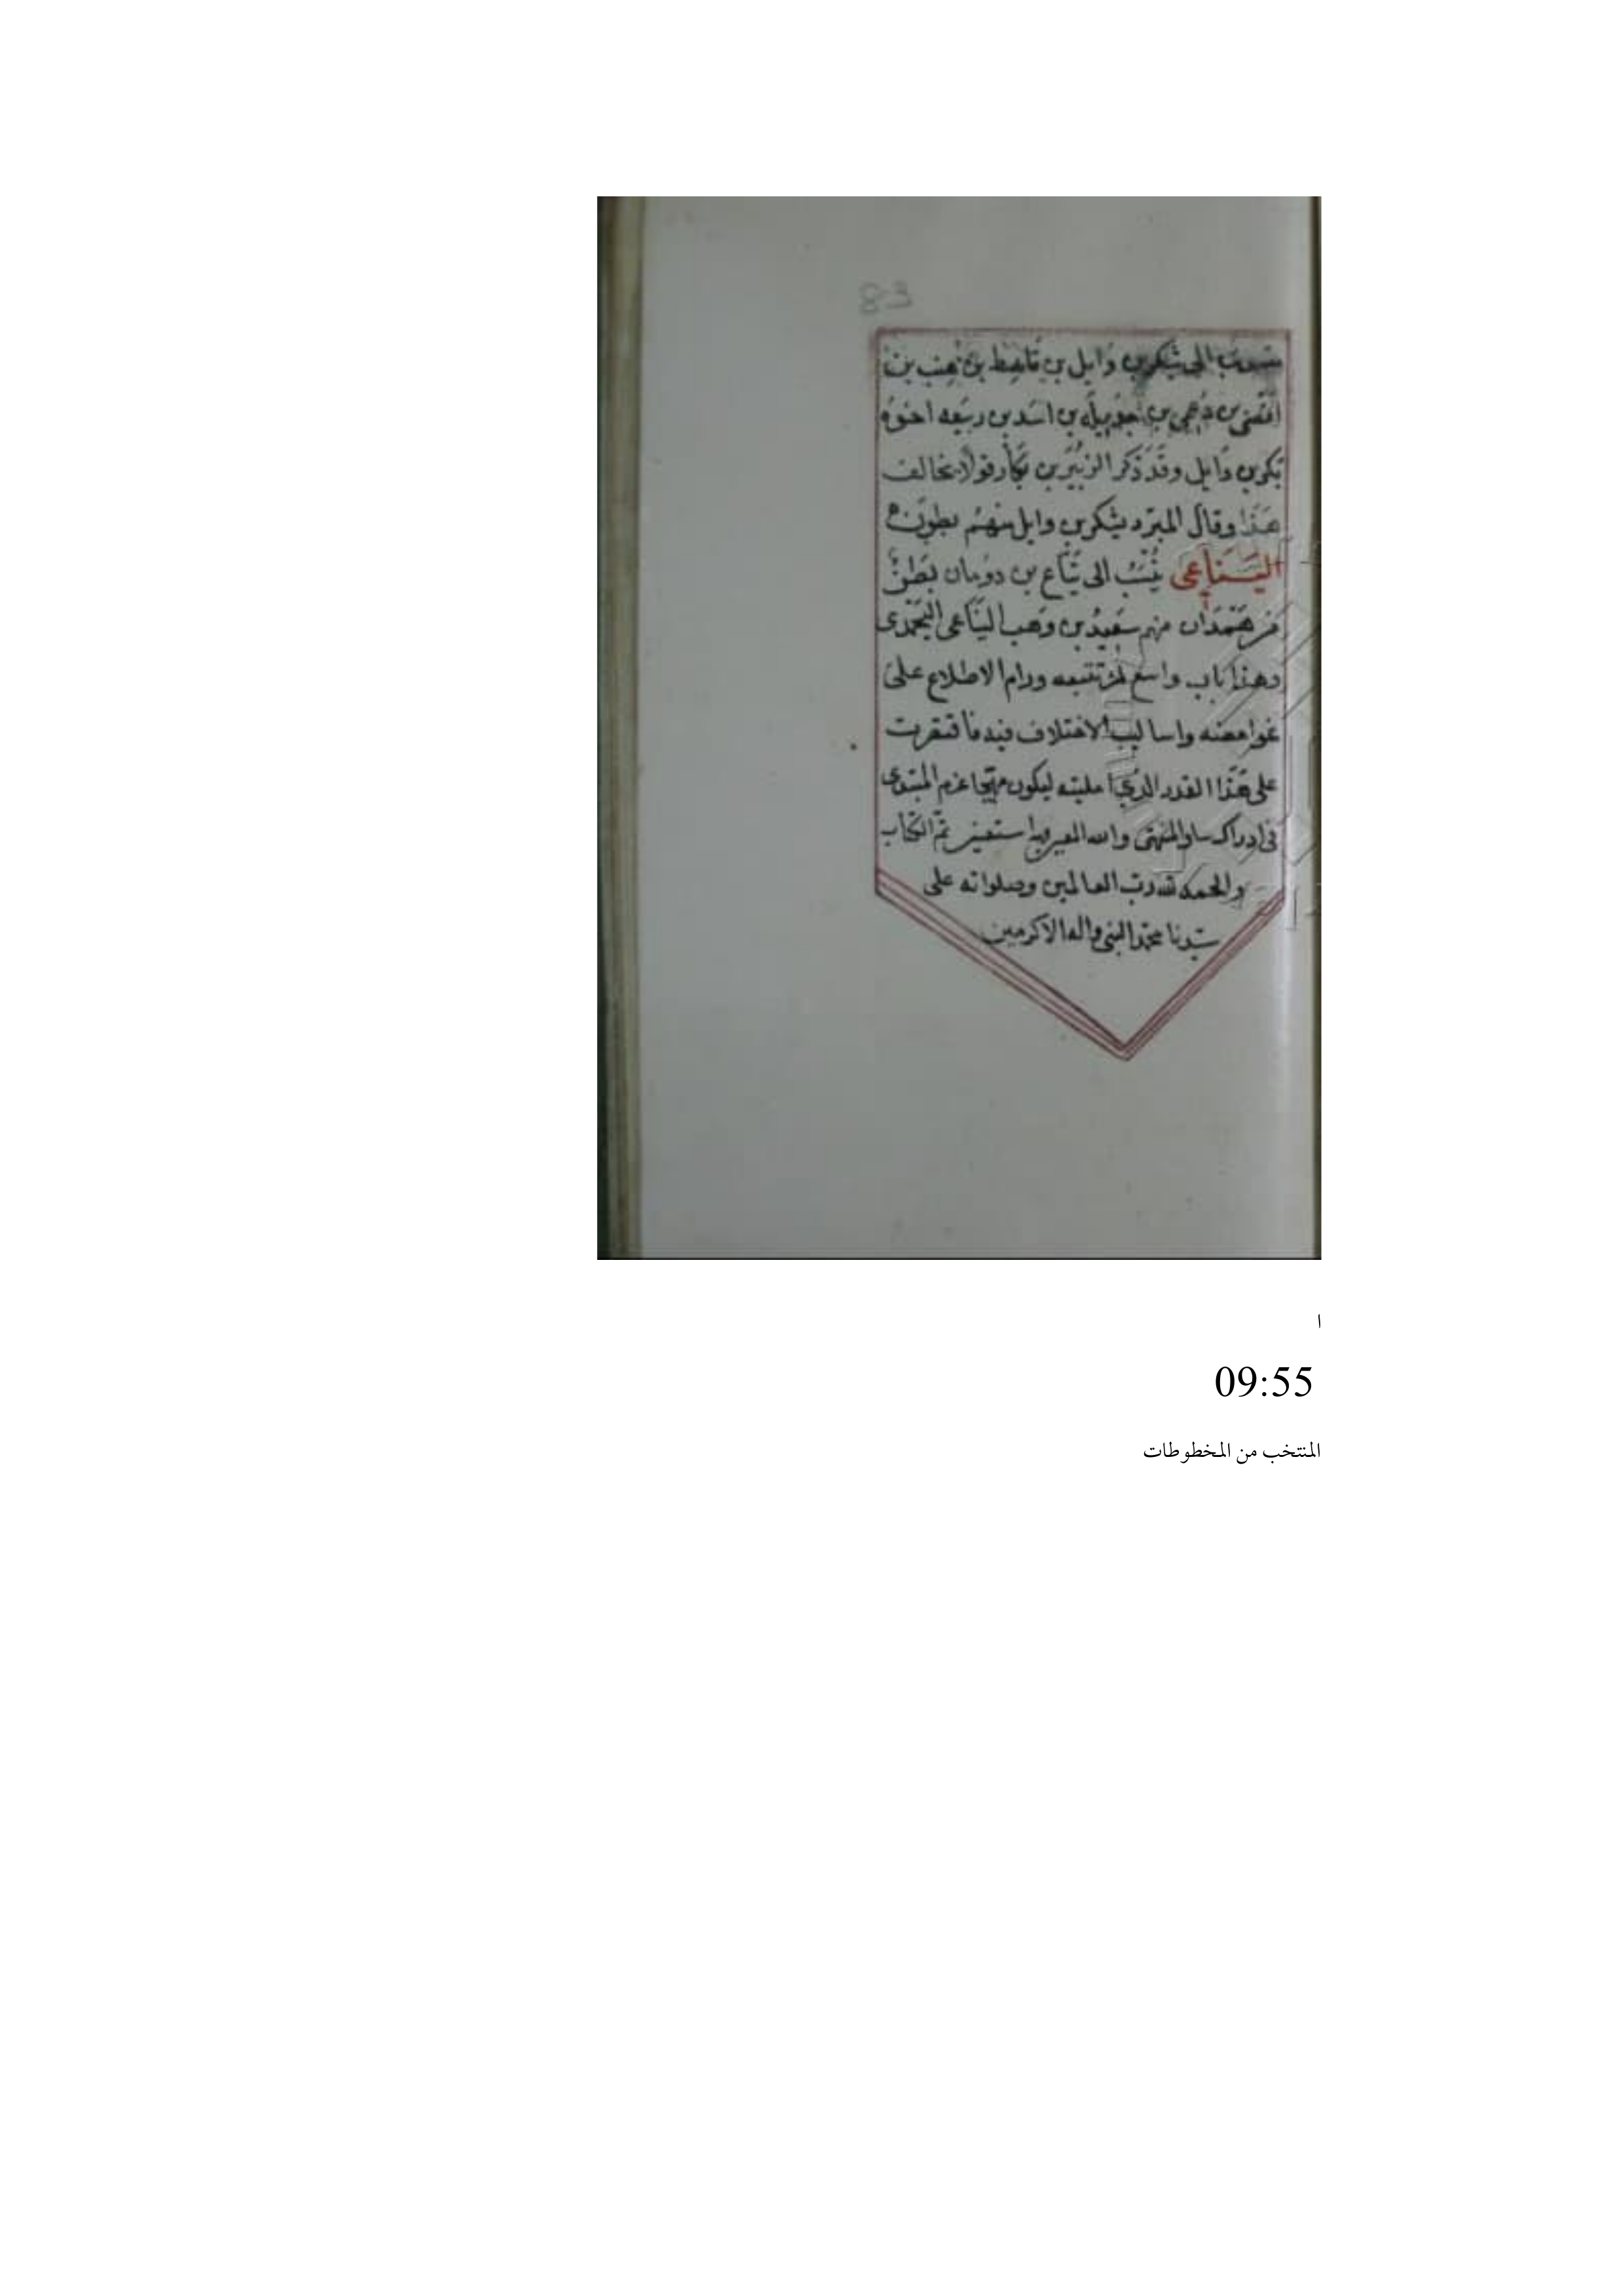 83
ينسب الى يشكر بن وايل بن قاسط بن هنب بن
افصى بن دعمي بن جديله بن اسد بن ربيعه اخوه
بكر بن وايل وقد ذكر الزبير بن بكار قولا يخالف
هذا وقال المبرد يشكر بن وايل منهم بطون
اليـنـاعى ينسب الى يناع بن دومان بطن
من همدان منهم سعيد بن وهب اليناعى اليحمدى
وهذا باب واسع لمن تتبعه ورام الاطلاع على
غوامضه واساليب الاختلاف فيه فاقتصرت
على هذا القدر الذي امليته ليكون مهيجا عزم المبتدى
فى ادراك شاو المنتهى والله المعين وبه استعين تم الكتاب
والحمد لله رب العالمين وصلواته على
سيدنا محمد النبى واله الاكرمين
ا
09:55
المنتخب من المخطوطات